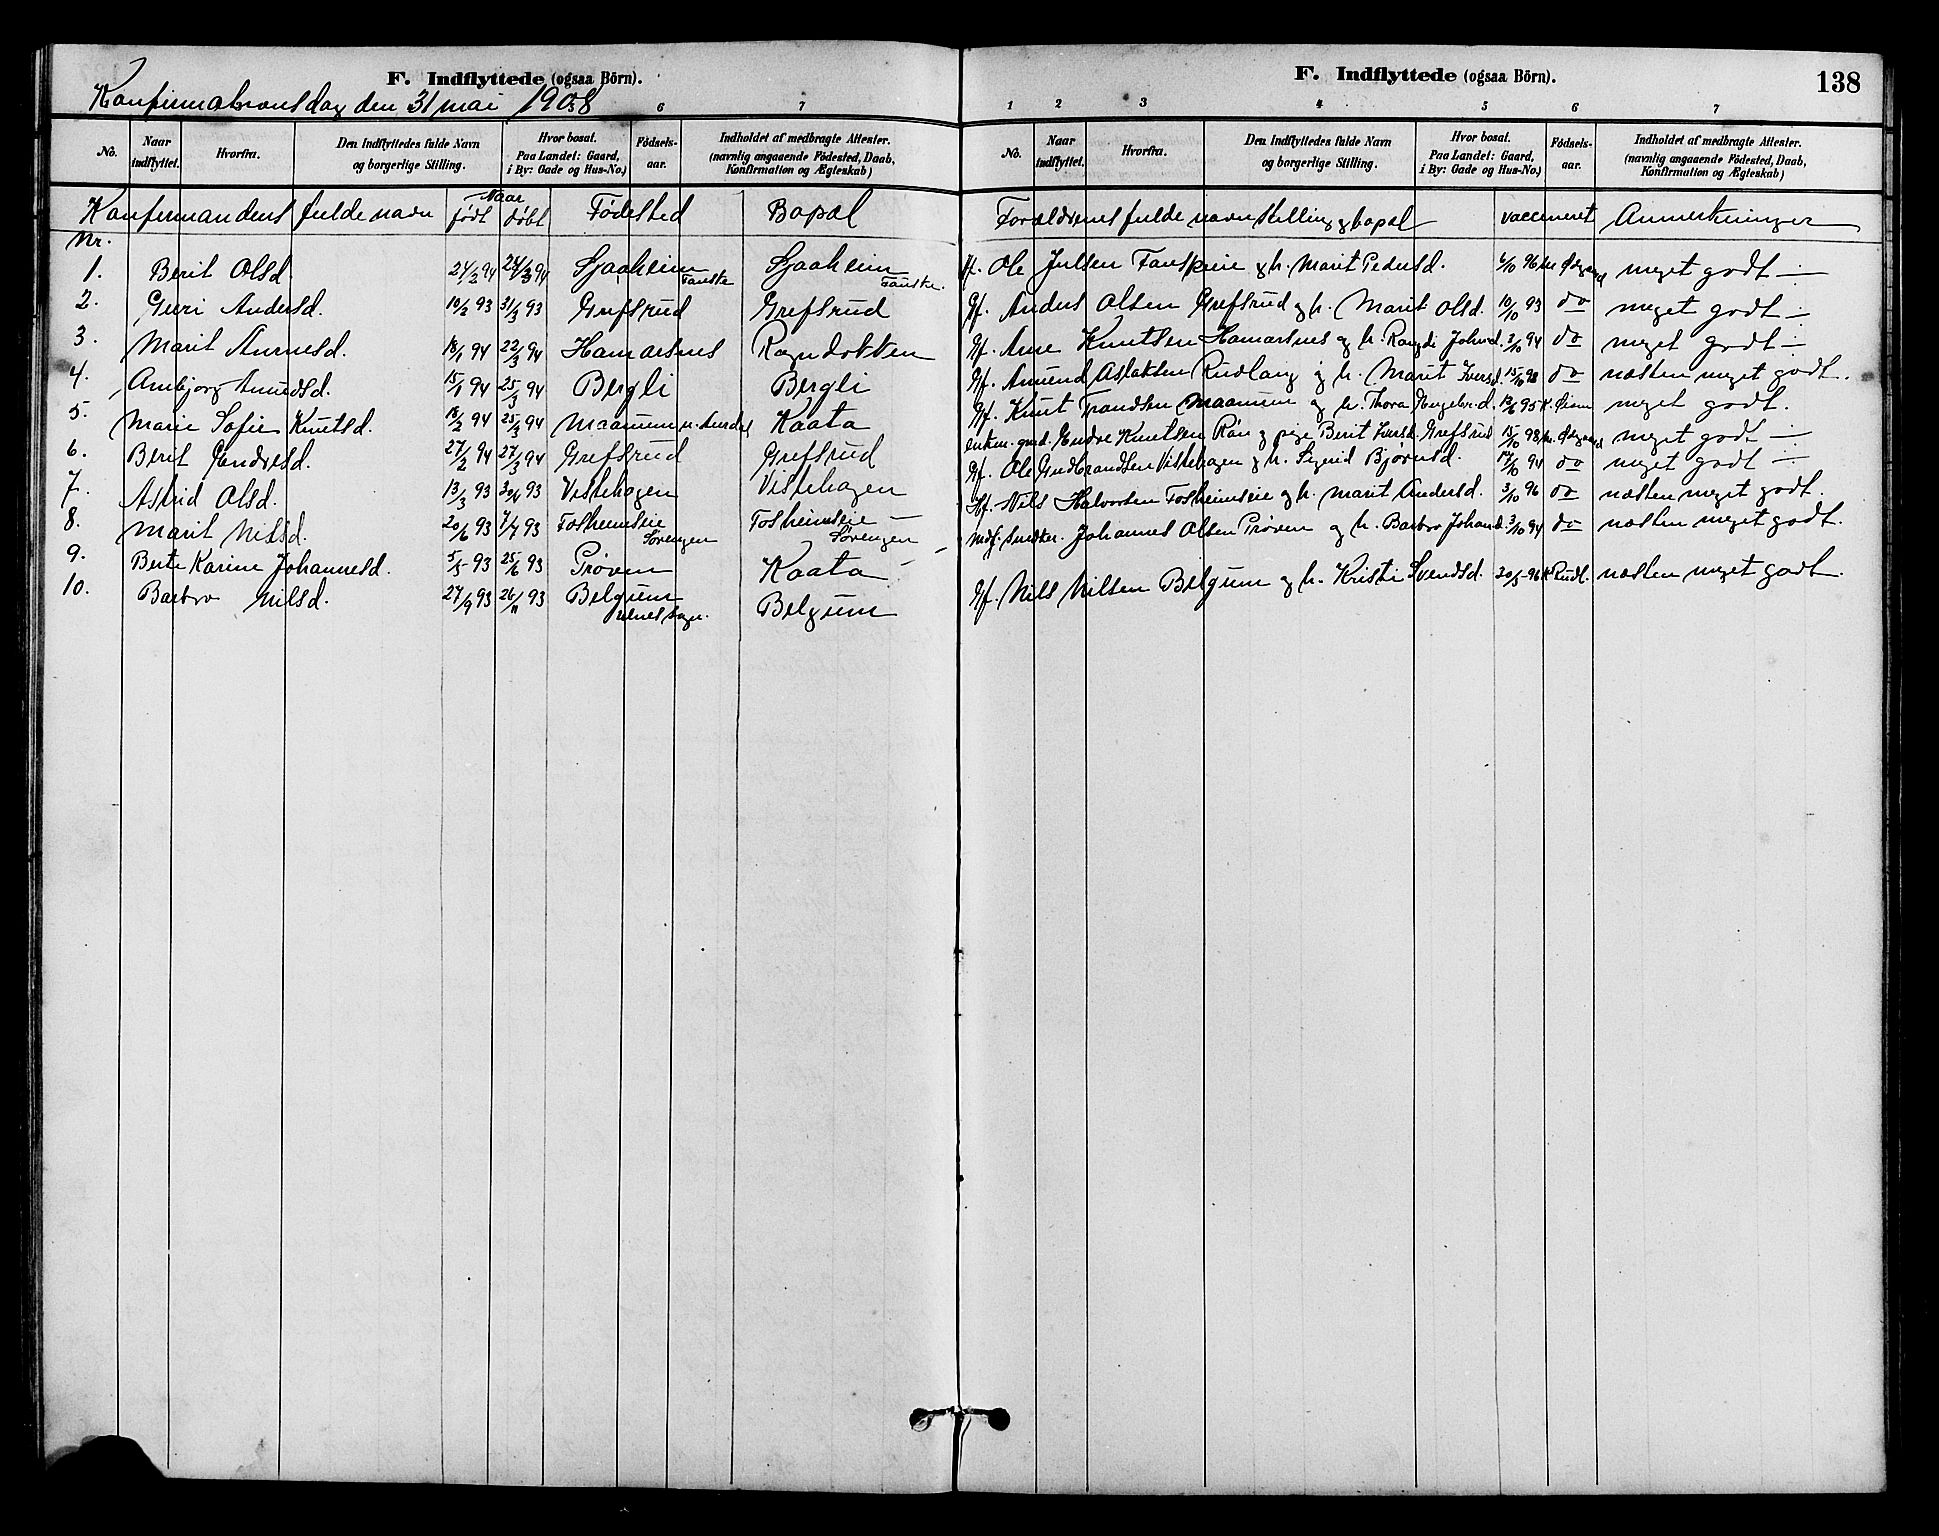 F. Indflyttede (ogsaa Börn).
Konfirmationsdag den 31 mai 1908
6 7
No. Naar indflyttet. Hvorfra. Den Indflyttedes fulde Navn og borgerlige Stilling. Hvor bosat. Paa Landet: Gaard, i By: Gade og Hus-No.) Födsels-aar. Indholdet af medbragte Attester. (navnlig angaaende Födested, Daab, Konfirmation og Ægteskab)
Konfirmandens fulde navn Naar født døbt Fødested Bopæl
Nr.
1. Berit Olsd. 24/2 94 24/3 94 Sjaaheim Fauske Sjaaheim Fauske.
2. Guri Andersd. 10/2 93 31/3 93 Grefsrud Grefsrud
3. Marit Arnesd. 18/1 94 22/3 94 Hamarsnes Rogndokken
4. Ambjorg Amundsd. 15/1 94 25/3 94 Bergli Bergli
5. Marie Sofie Knutsd. 18/2 94 25/3 94 Maanum n. Aurdal Kaata
6. Berit Endresd. 27/2 94 27/3 94 Grefsrud Grefsrud
7. Astrid Olsd. 13/3 93 30/4 93 Vistehagen Vistehagen
8. Marit Nilsd. 20/6 93 7/7 93 Fosheimseie Sørengen Fosheimseie Sørengen
9. Berte Karine Johannesd. 5/5 93 25/6 93 Prøven Kaata
10. Barbro Nilsd. 27/9 93 26/11 93 Belgum ulnes sogn. Belgum
F. Indflyttede (ogsaa Börn). 138
1 2 3 4 5 6 7
No. Naar indflyttet. Hvorfra. Den Indflyttedes fulde Navn og borgerlige Stilling. Hvor bosat. Paa Landet: Gaard, i By: Gade og Hus-No.) Födsels-aar. Indholdet af medbragte Attester. (navnlig angaaende Födested, Daab, Konfirmation og Ægteskab)
Forældrenes fulde navn stilling og bopæl vaccineret Anmerkninger
Ole Julsen Fauskeie og h. Marit Pedersd. 6/10 96 meget godt —
Gf. Anders Olsen Grefsrud og h. Marit Olsd. 10/10 93 do meget godt —
Gf. Arne Knutsen Hamarsnes og h. Rangdi Johnsd. 3/10 94 do meget godt —
Gf. Amund Aslaksen Rudlang og h. Marit Iversd. 15/10 98 do næsten meget godt.
Gf. Knut Trandsen Maanum og h. Thora Engebr.d. 12/6 95 meget godt.
enkem. gmd. Endre Knutsen Røn og pige Berit Iversd. Grefsrud 15/10 98 meget godt —
Gf. Ole Gudbrandsen Vistehagen og h. Sigrid Bjørnsd. 17/10 94 do meget godt —
Hf. Nils Halvorsen Fosheimseie og h. Marit Andersd. 3/10 96 do næsten meget godt.
Indf. Snedker. Johannes Olsen Prøven og h. Barbro Johansd. 3/10 94 do næsten meget godt.
Gf. Nils Nilsen Belgum og h. Kristi Svendsd. 30/5 96 næsten meget godt.